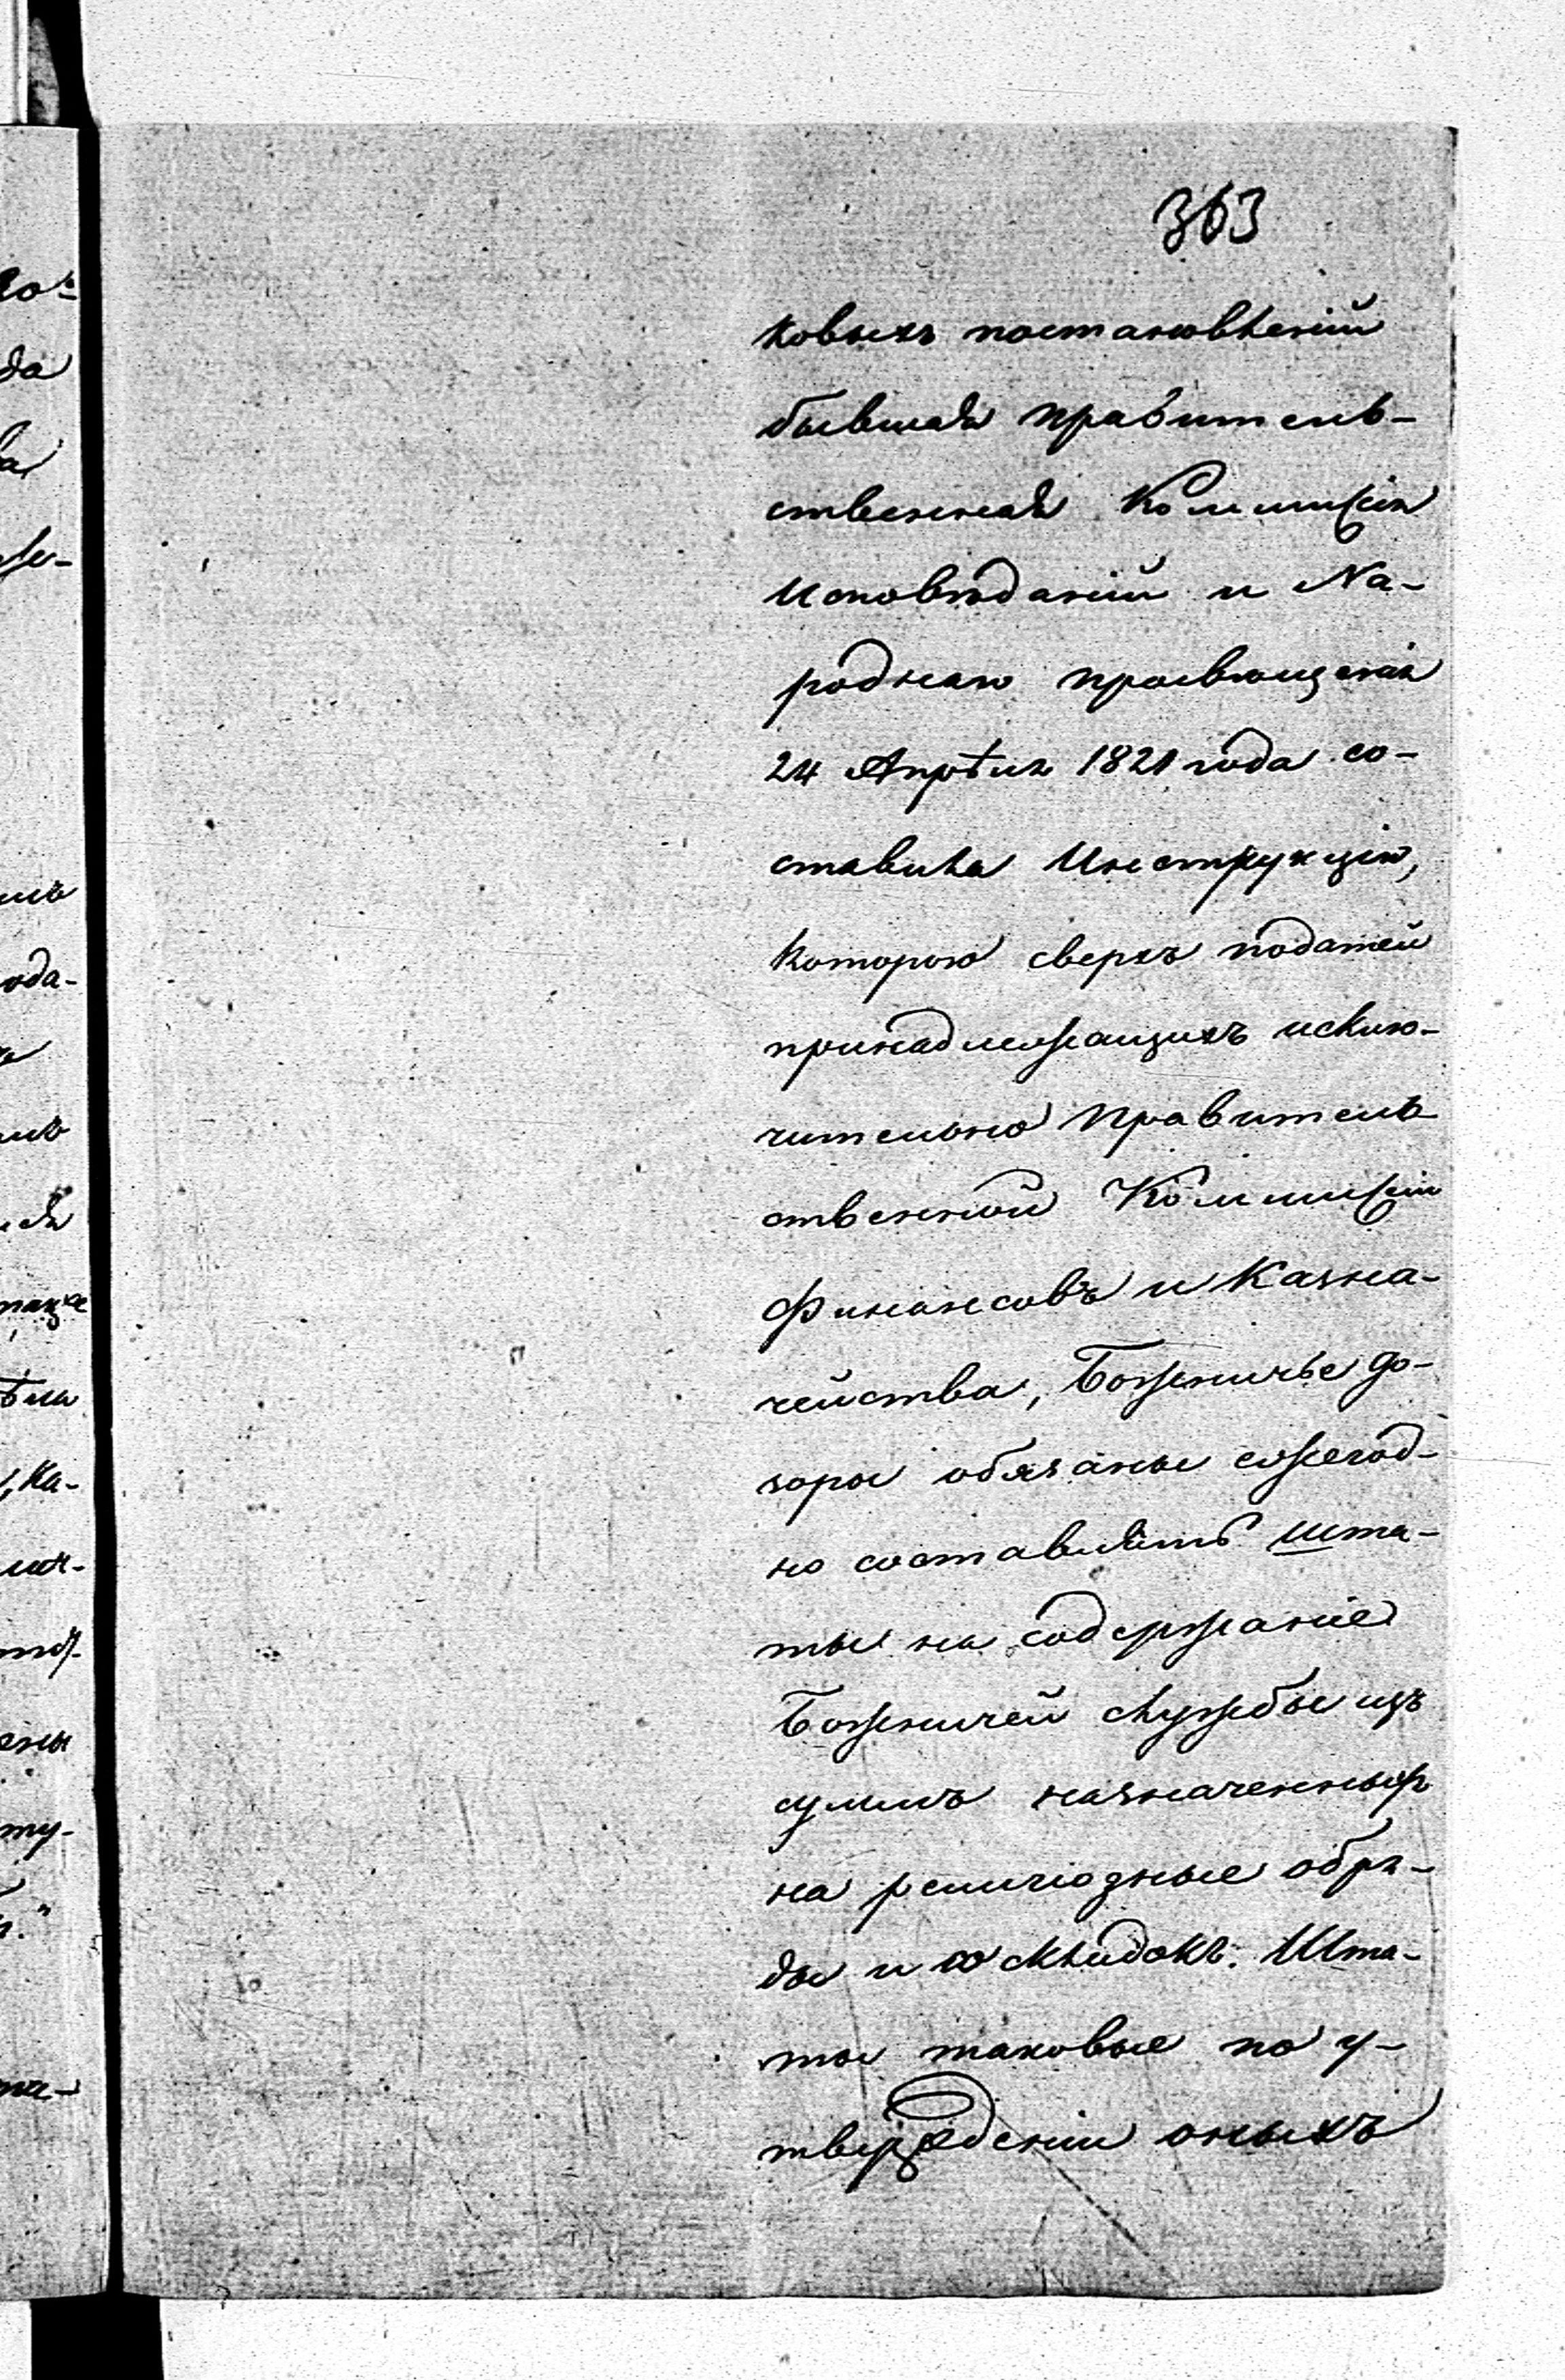 363
ковыхъ постановленій
бывшая Правитель-
ственная Коммисія
Исповѣданій и На-
роднаго просвѣщенія
24 Апрѣля 1821 года со-
ставила Инструкцію,
которою сверхъ податей
принадлежащихъ исклю-
чительно Правитель
ственной Коммисіи
Финансовъ и Казна-
чейства, Божничьe до-
зоры обязаны ежегод-
но составлять шта-
ты на содержаніе
Божничей службы изъ
суммъ назначенныхъ
на религіозные обря-
ды и со складокъ. Шта-
ты таковые по у-
твержденіи оныхъ